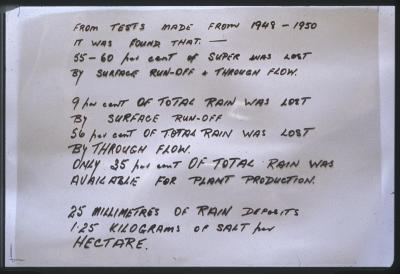 FROM TESTS MADE FROM 1949 - 1950
IT WAS FOUND THAT. —
55-60 per cent OF SUPER WAS LOST
BY SURFACE RUN-OFF & THROUGH FLOW.
9 per cent OF TOTAL RAIN WAS LOST
BY SURFACE RUN-OFF
56 per cent OF TOTAL RAIN WAS LOST
BY THROUGH FLOW.
ONLY 35 per cent OF TOTAL RAIN WAS
AVAILABLE FOR PLANT PRODUCTION.
25 MILLIMETRES OF RAIN DEPOSITS
1.25 KILOGRAMS OF SALT per
HECTARE.